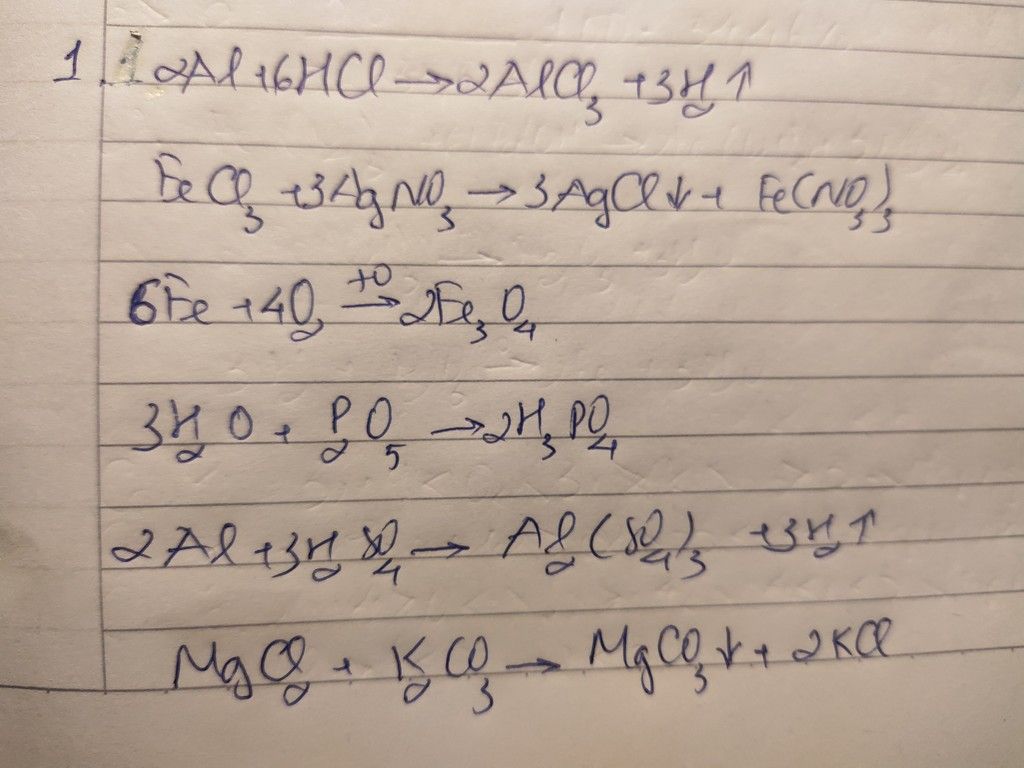 1. 2Al + 6HCl → 2AlCl₃ + 3H₂↑
FeCl₃ + 3AgNO₃ → 3AgCl↓ + Fe(NO₃)₃
6Fe + 4O₂ →(+O) 2Fe₃O₄
3H₂O + P₂O₅ → 2H₃PO₄
2Al + 3H₂SO₄ → Al₂(SO₄)₃ + 3H₂↑
MgCl₂ + K₂CO₃ → MgCO₃↓ + 2KCl